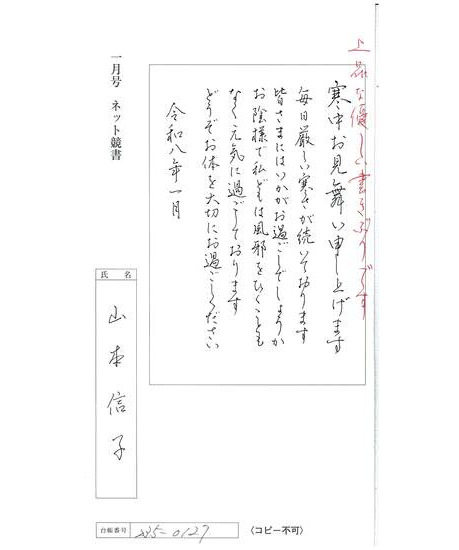 上品な優しい書きぶりです
寒中お見舞い申し上げます
毎日厳しい寒さが続いております
皆さまにはいかがお過ごしでしょうか
お陰様で私どもは風邪をひくことも
なく元気に過ごしております
どうぞお体を大切にお過ごしください
令和八年一月
一月号 ネット競書
氏名
山本信子
台帳番号
〈コピー不可〉